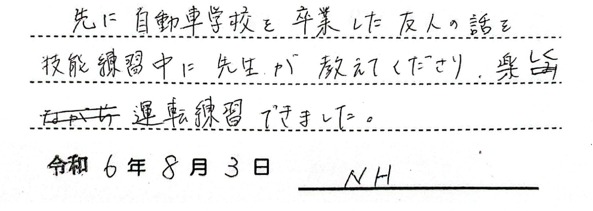 先に自動車学校を卒業した友人の話を
技能練習中に先生が教えてくださり、楽しく
運転練習できました。
令和6年8月3日 NH